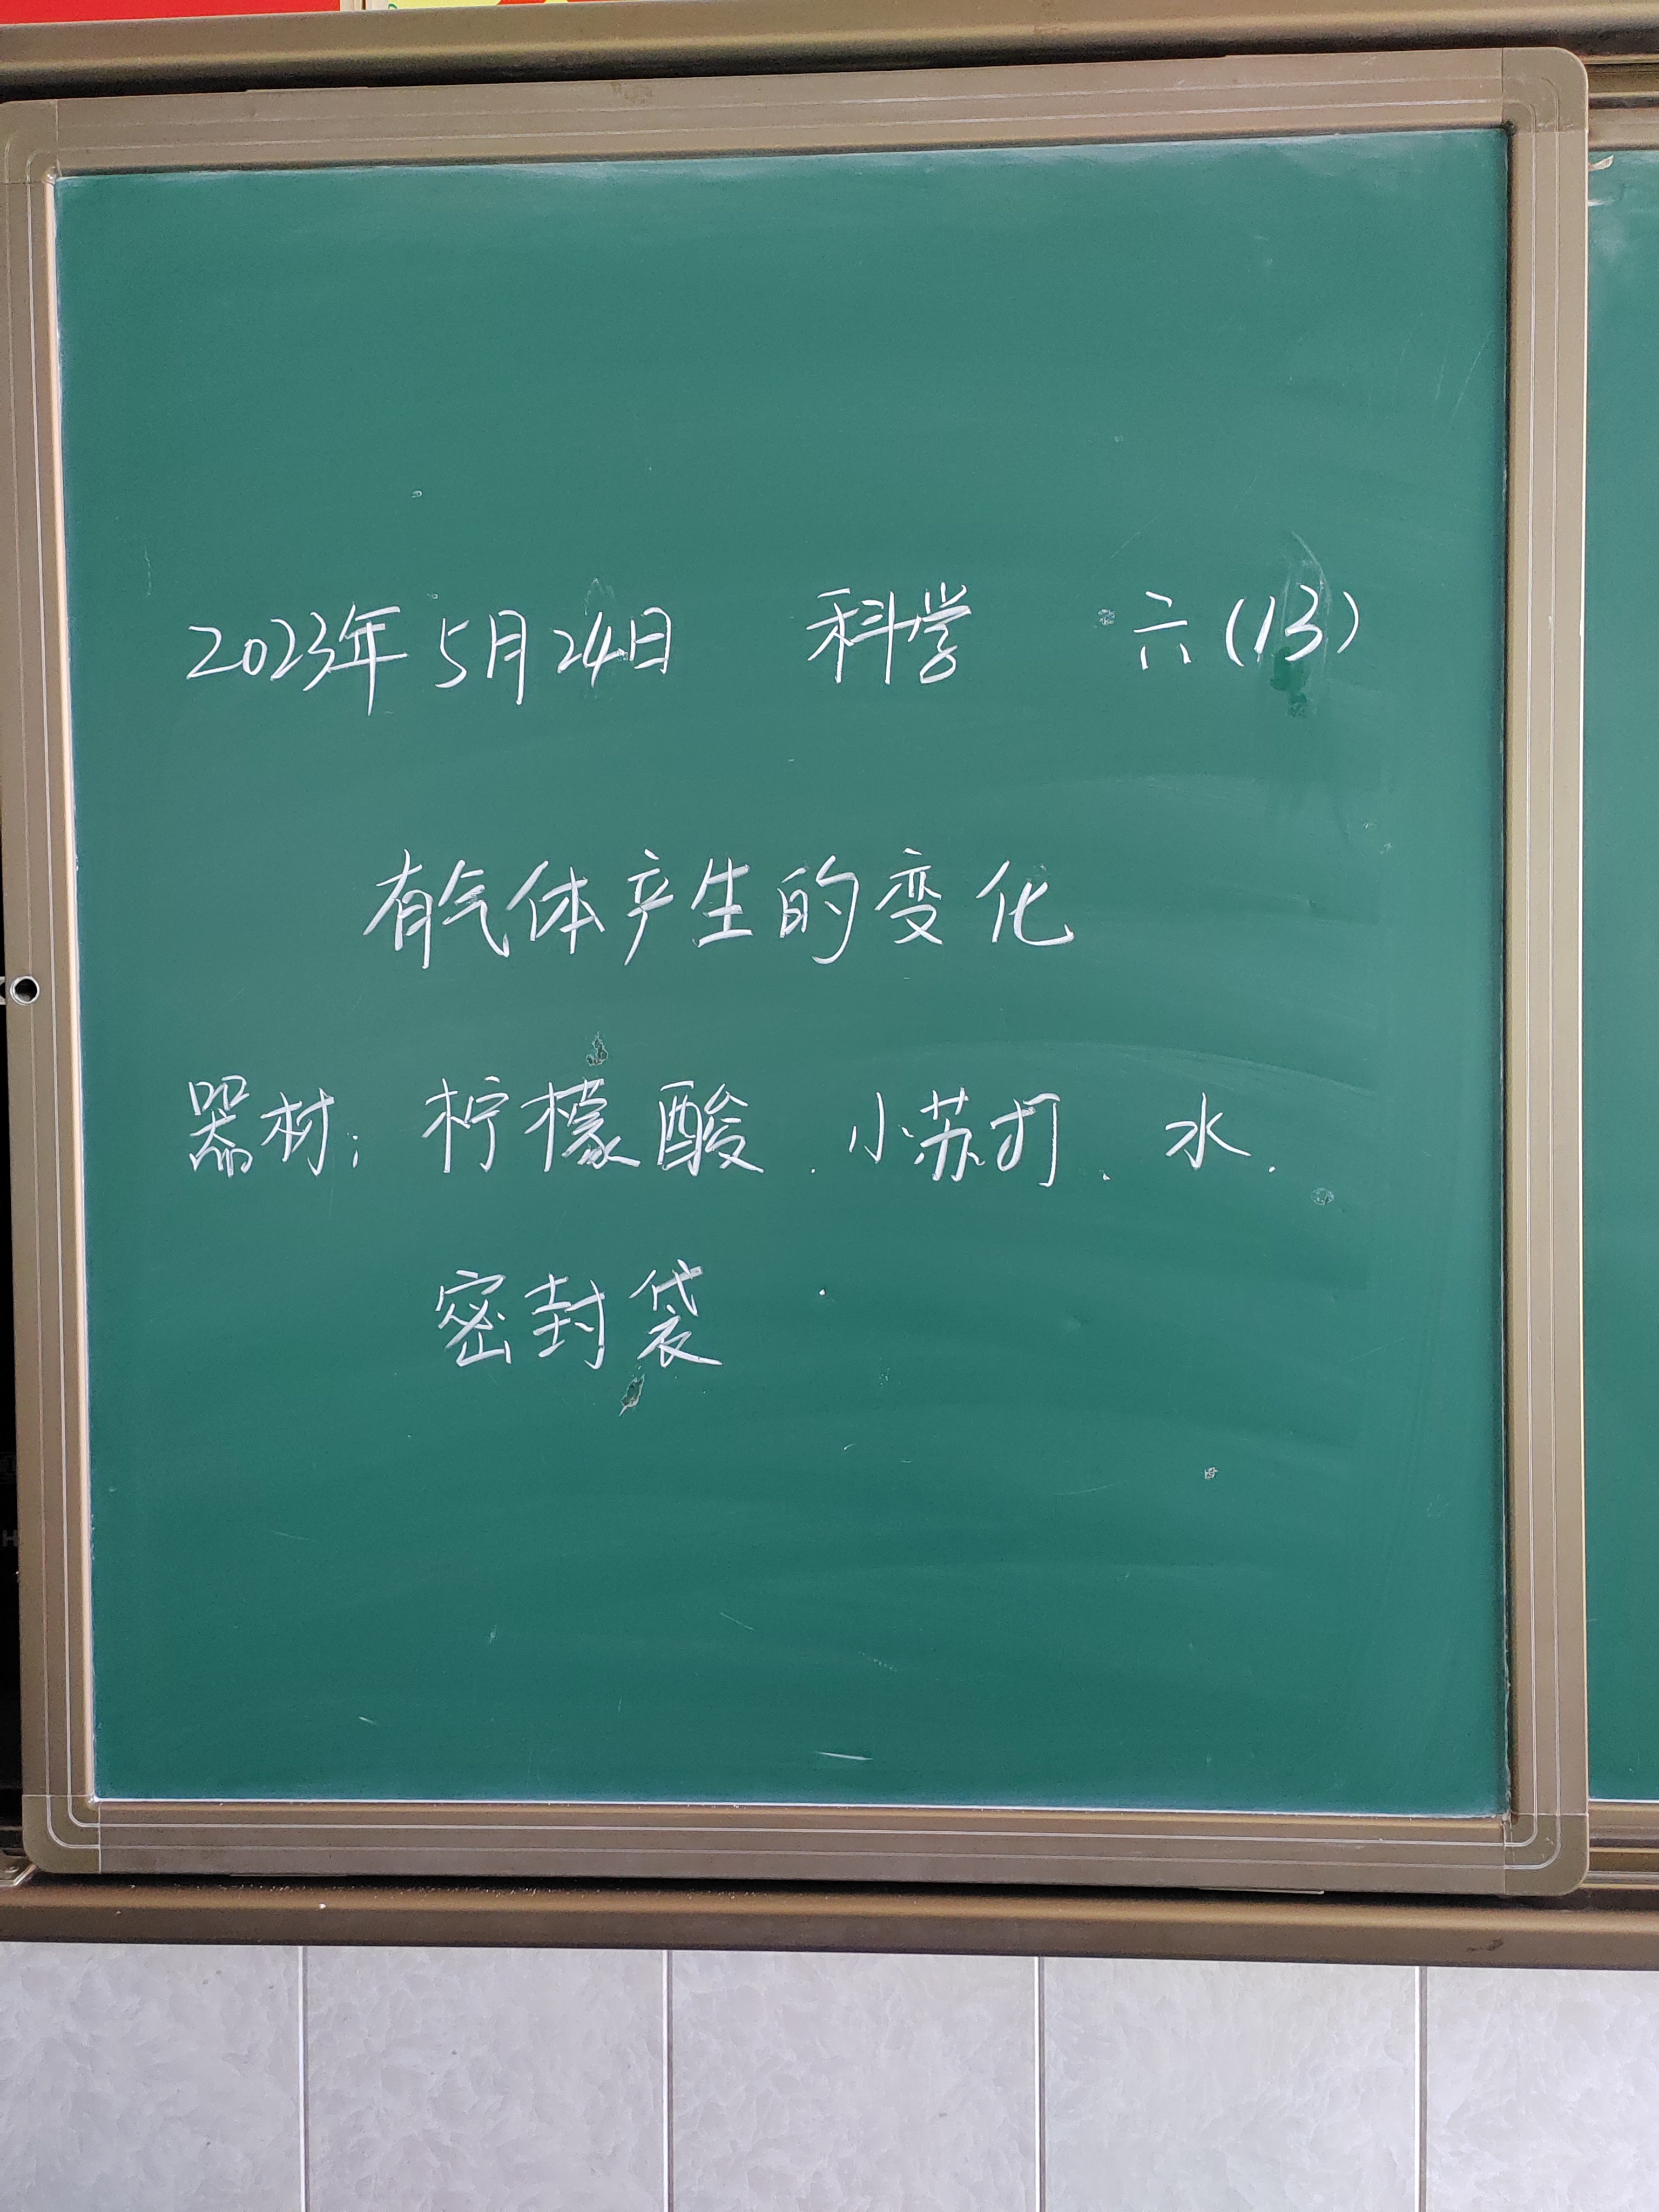 2023年5月24日 科学 六(13)
有气体产生的变化
器材：柠檬酸、小苏打、水、
密封袋